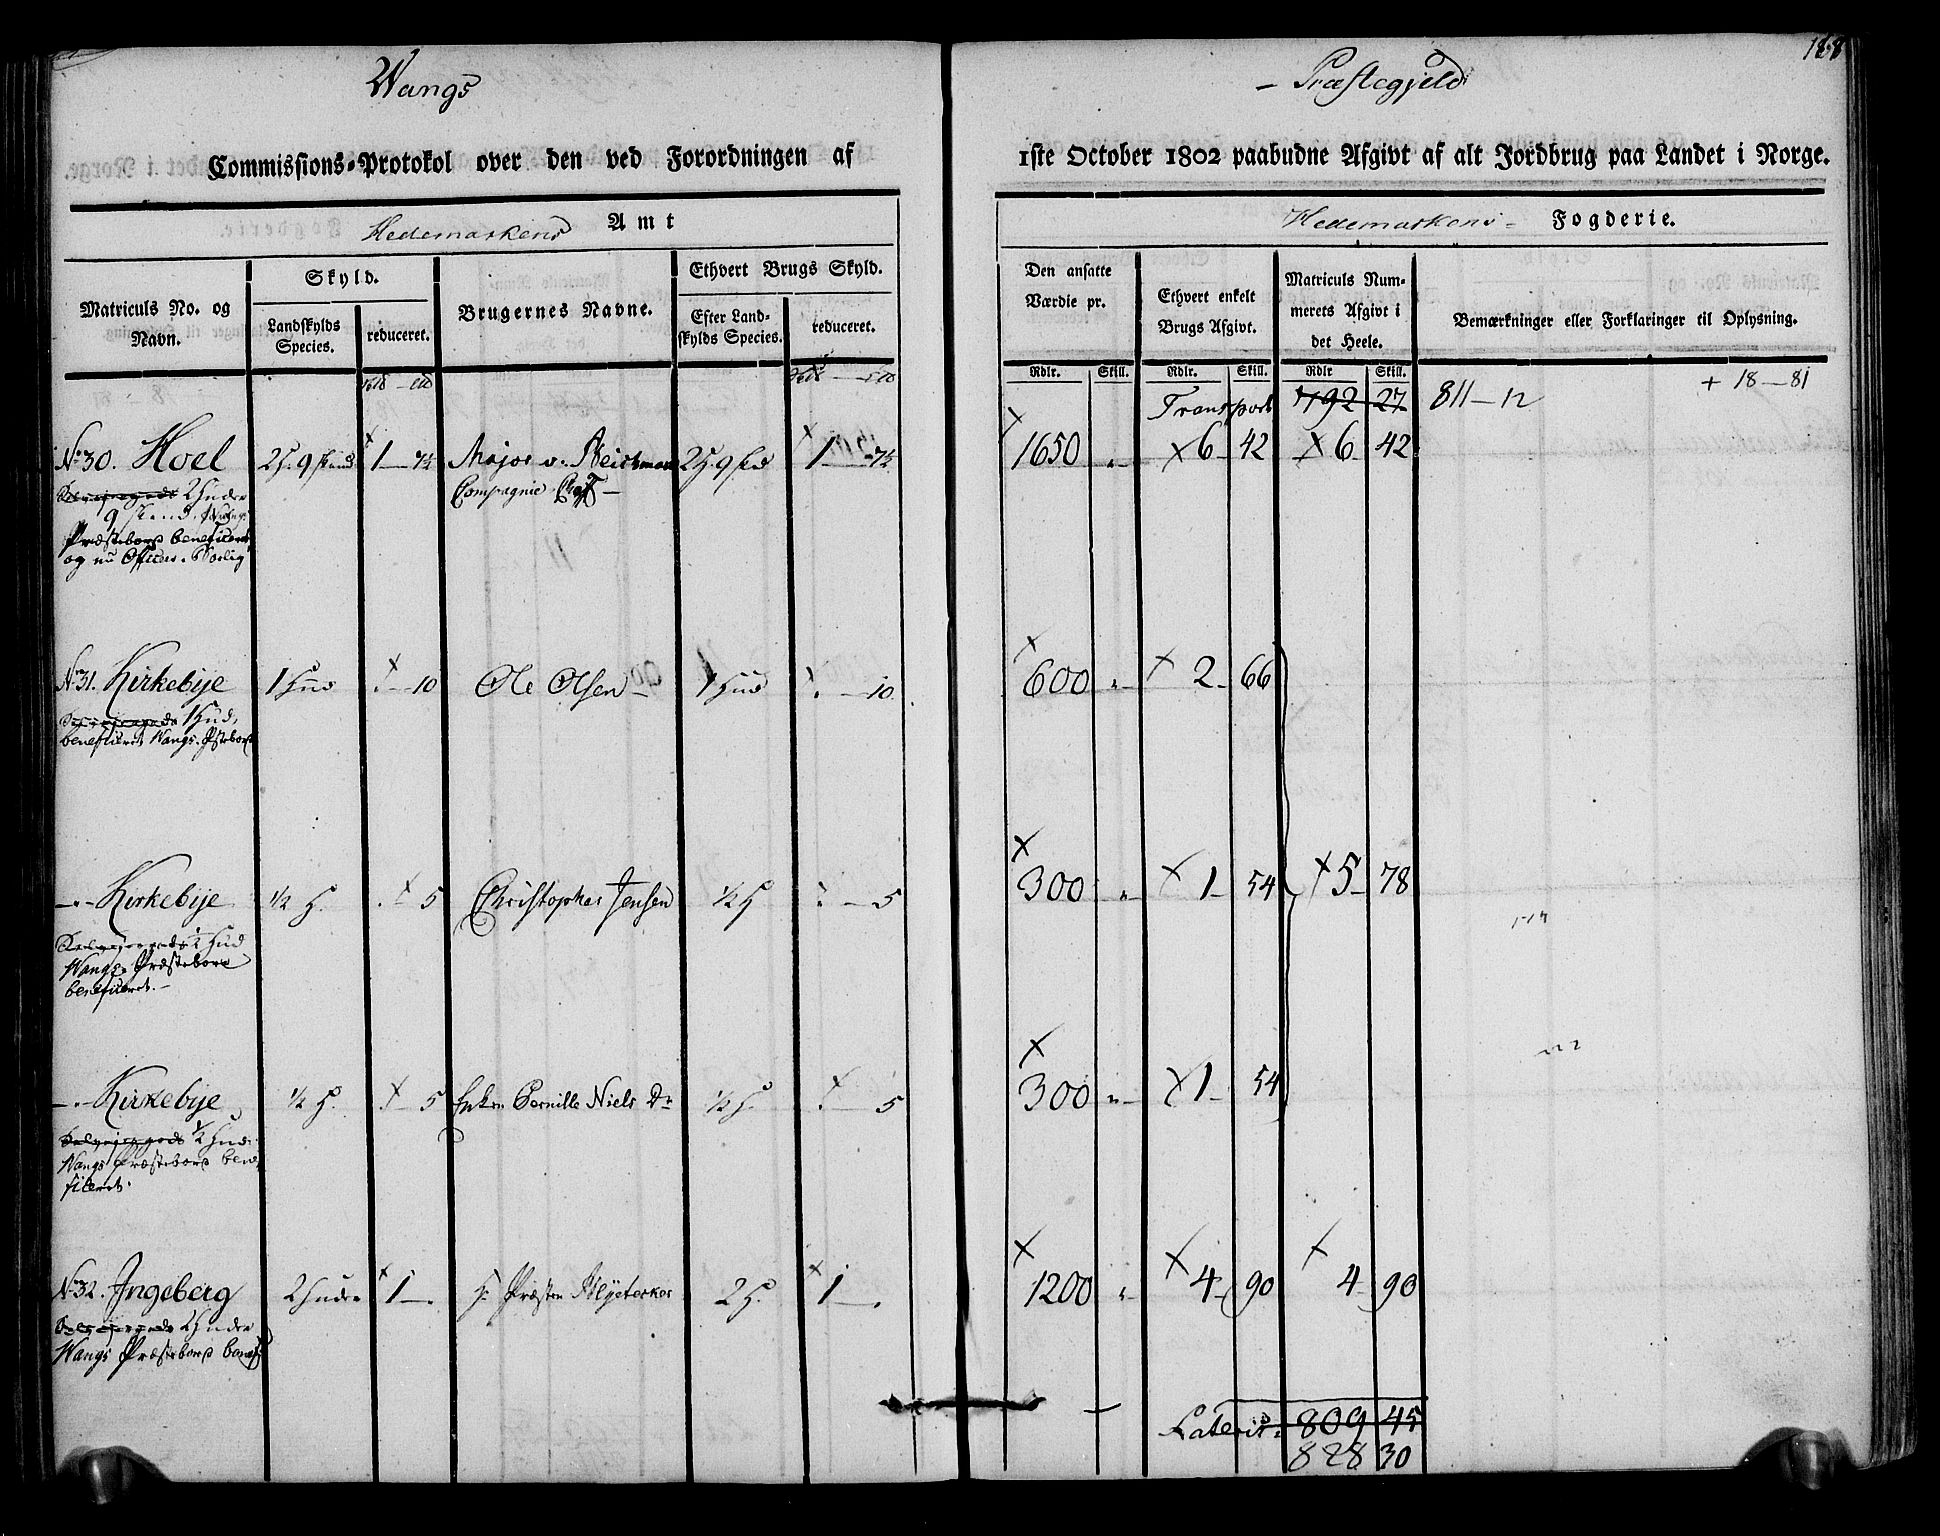 188
Wangs - Præstegjeld
Commissions-Protokol over den ved Forordningen af 1ste October 1802 paabudne Afgivt af alt Jordbrug paa Landet i Norge.
Hedemarkens Amt
Hedemarkens - Fogderie.
Matriculs No. og Navn.
Skyld.
Landskylds Species.
reduceret.
Brugernes Navne.
Ethvert Brugs Skyld.
Efter Landskylds Species.
reduceret.
Den ansatte Værdie pr.
Ethvert enkelt Brugs Afgivt.
Matriculs Nummerets Afgivt i det Heele.
Bemærkninger eller Forklaringer til Oplysning.
Rdlr. Skill. Rdlr. Skill. Rdlr Skill.
Transport 792 27 811-12 + 18-81
No 30. Hoel 2H. 9 skind 1-7½ Major v. Reichman 2H 9 sk 1-7½ 1650 " 6 42 6 42
Compagnie Chef-
2 Huder
9 skind
Præstebord beneficeret
og nu Officer Bolig
No 31. Kirkebije 1 Hud -10 Ole Olsen- 1 Hud -10 600 " 2 66
1 Hud,
beneficeret Wangs Pstebord
-"- Kirkebije ½ H. 5 Christopher Jensen ½ H 5 300 " 1 54 5 78
½ Hud
Wangs Præstebord
beneficeret.-
-"- Kirkebije ½ H. 5 Enken Pernille Niels Dr ½ H. 5 300 " 1 54
½ Hud
Wangs Præstebord bene
ficeret.
No 32. Ingeberg 2 Huder 1-. Hr Præsten 2 H. 1-. 1200 " 4 90 4 90
2 Huder
Wangs Præstebord benef
Lateris 809 45
828 30